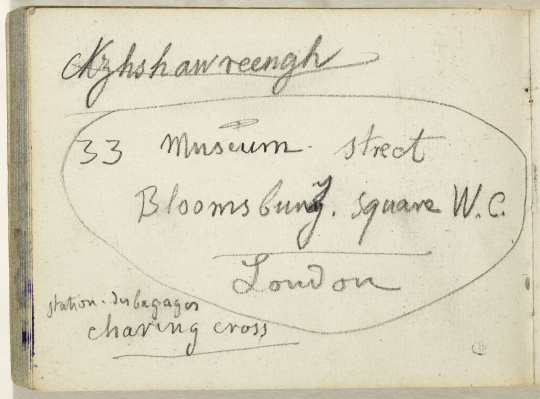 Kzhshawreengh
33 Museum. street
Bloomsbury. square W.C.
London
station. des bagages
charing cross